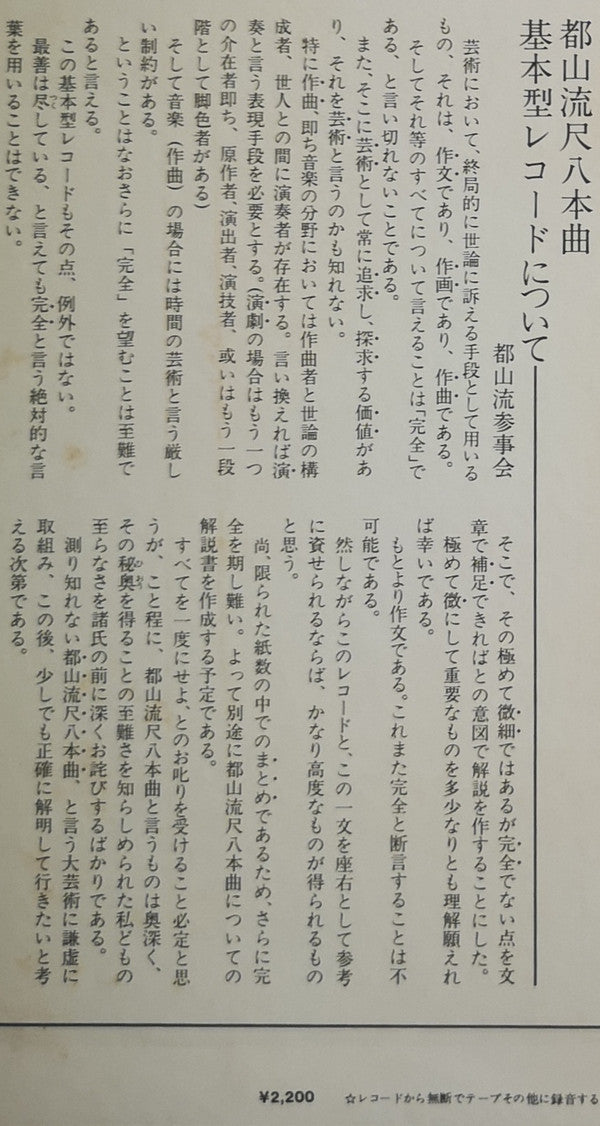 都山流尺八本曲
基本型レコードについて
都山流参事会
芸術において、終局的に世論に訴える手段として用いる
もの、それは、作文であり、作画であり、作曲である。
そしてそれ等のすべてについて言えることは「完全」で
ある、と言い切れないことである。
また、そこに芸術として常に追求し、探求する価値があ
り、それを芸術と言うのかも知れない。
特に作曲、即ち音楽の分野においては作曲者と世論の構
成者、世人との間に演奏者が存在する。言い換えれば演
奏と言う表現手段を必要とする。(演劇の場合はもう一つ
の介在者即ち、原作者、演出者、演技者、或いはもう一段
階として脚色者がある)
そして音楽(作曲)の場合には時間の芸術と言う厳し
い制約がある。
ということはなおさらに「完全」を望むことは至難で
あると言える。
この基本型レコードもその点、例外ではない。
最善は尽している、と言えても完全と言う絶対的な言
葉を用いることはできない。
そこで、その極めて微細ではあるが完全でない点を文
章で補足できればとの意図で解説を作することにした。
極めて微にして重要なものを多少なりとも理解願えれ
ば幸いである。
もとより作文である。これまた完全と断言することは不
可能である。
然しながらこのレコードと、この一文を座右として参考
に資せられるならば、かなり高度なものが得られるもの
と思う。
尚、限られた紙数の中でのまとめであるため、さらに完
全を期し難い。よって別途に都山流尺八本曲についての
解説書を作成する予定である。
すべてを一度にせよ、とのお叱りを受けること必定と思
うが、こと程に、都山流尺八本曲と言うものは奥深く、
その秘奥を得ることの至難さを知らしめられた私どもの
至らなさを諸氏の前に深くお詫びするばかりである。
測り知れない都山流尺八本曲、と言う大芸術に謙虚に
取組み、この後、少しでも正確に解明して行きたいと考
える次第である。
¥2,200
☆レコードから無断でテープその他に録音する